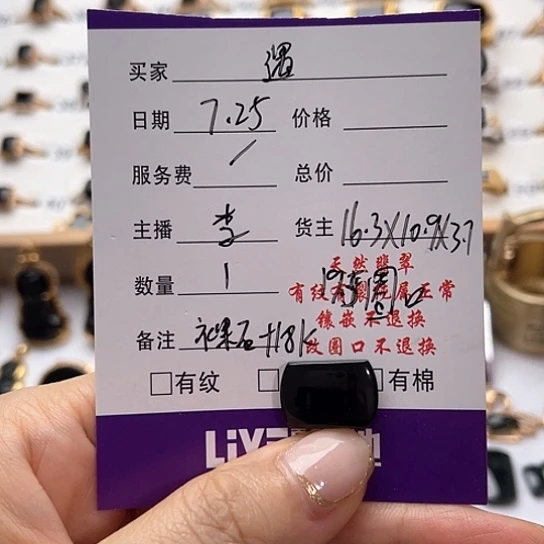 买家 遇
日期 7.25 价格
服务费 / 总价
主播 李 货主 16.3X10.9X3.7
天然翡翠
数量 1 圈口
有纹有裂纯属正常
镶嵌不退换
备注 裸石+18K
纹圈口不退换
□有纹 □ □有棉
LIVE